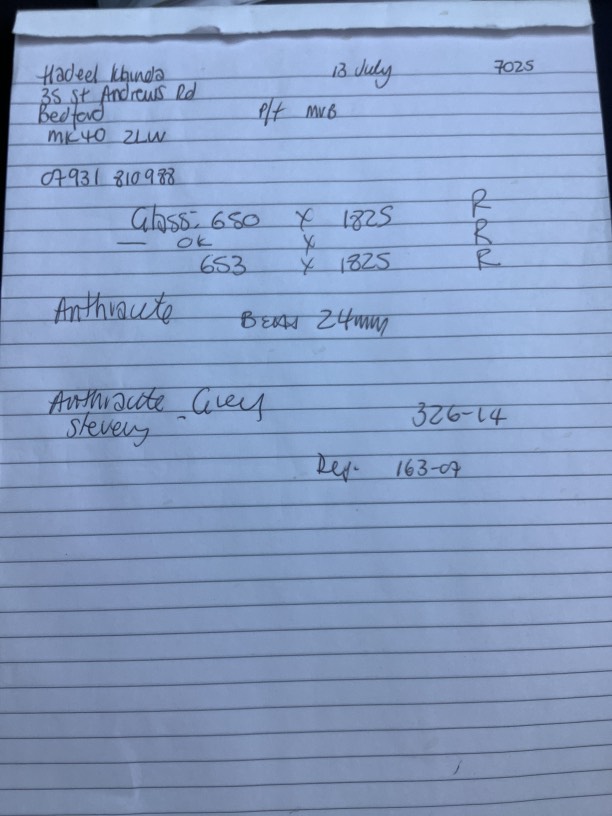 Hadeel Khunda 13 July 7025
35 St Andrews Rd
Bedford P/t MVB
MK40 2LW
07931 810988
Glass: 650 x 1825 R
OK x R
653 x 1825 R
Anthracite 24mm
Anthracite - Grey 326-14
Stevens
Dep. 163-07